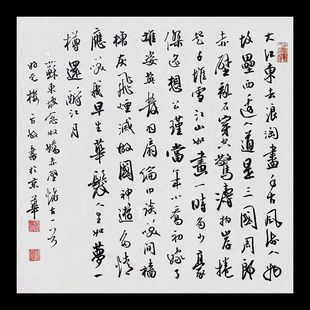 大江東去浪淘盡千古風流人物
故壘西邊人道是三國周郎
赤壁亂石穿空驚濤拍岸捲
起千堆雪江山如畫一時多少豪
傑遙想公瑾當年小喬初嫁了
雄姿英發羽扇綸巾談笑間檣
櫓灰飛煙滅故國神遊多情
應笑我早生華髮人生如夢一
樽還酹江月
蘇東坡念奴嬌赤壁懷古
書於京華